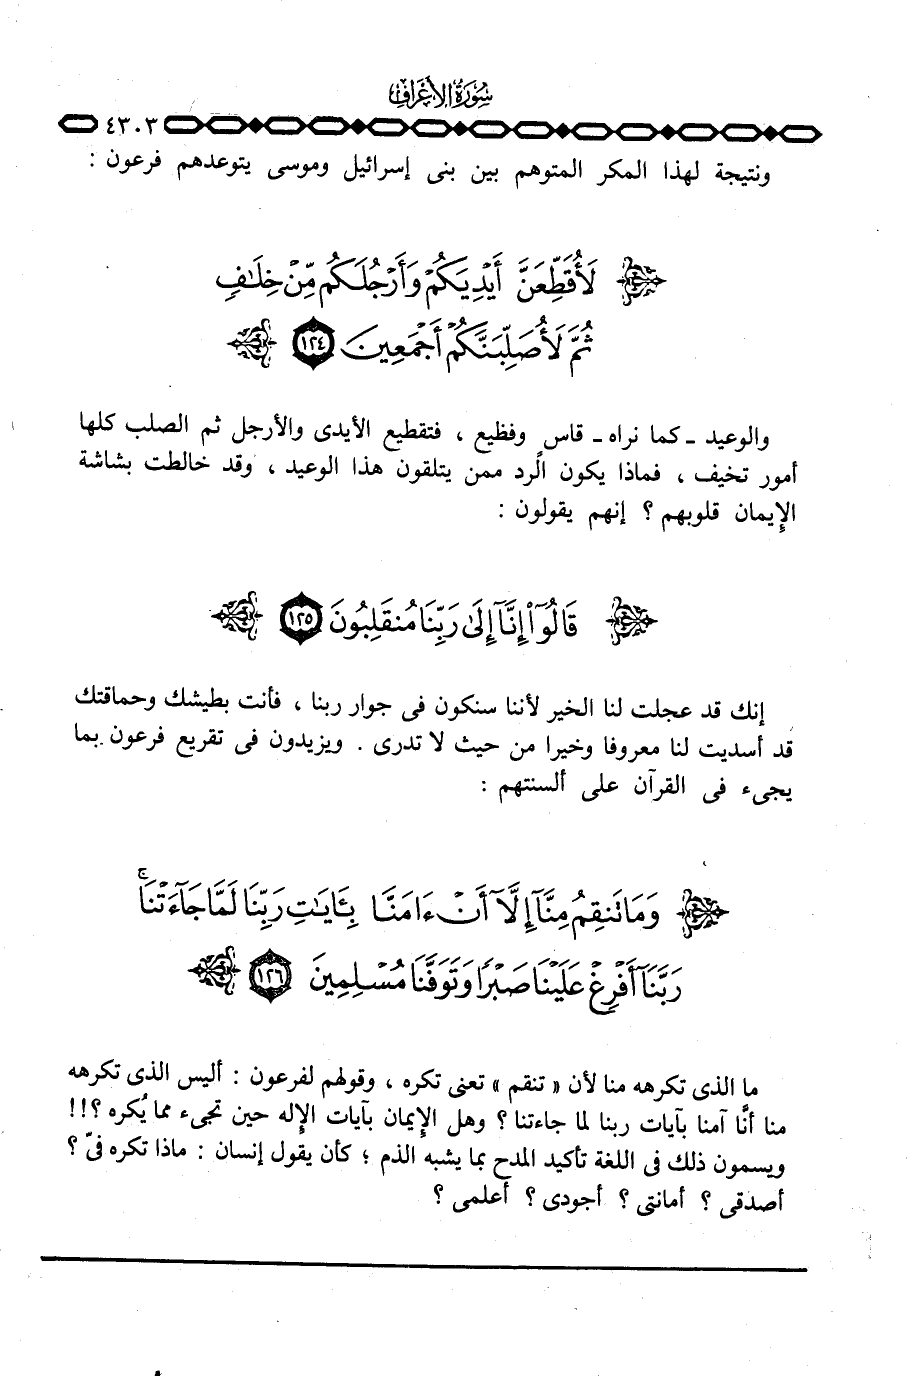 سُورَةُ الأَعْرَافِ
٤٣٠٣
ونتيجة لهذا المكر المتوهم بين بنى إسرائيل وموسى يتوعدهم فرعون :
لَأُقَطِّعَنَّ أَيْدِيَكُمْ وَأَرْجُلَكُم مِّنْ خِلَٰفٍ
ثُمَّ لَأُصَلِّبَنَّكُمْ أَجْمَعِينَ ١٢٤
والوعيد ـ كما نراه ـ قاس وفظيع ، فتقطيع الأيدى والأرجل ثم الصلب كلها
أمور تخيف ، فماذا يكون الرد ممن يتلقون هذا الوعيد ، وقد خالطت بشاشة
الإيمان قلوبهم ؟ إنهم يقولون :
قَالُوٓا۟ إِنَّآ إِلَىٰ رَبِّنَا مُنقَلِبُونَ ١٢٥
إنك قد عجلت لنا الخير لأننا سنكون فى جوار ربنا ، فأنت بطيشك وحماقتك
قد أسديت لنا معروفا وخيرا من حيث لا تدرى . ويزيدون فى تقريع فرعون بما
يجىء فى القرآن على ألسنتهم :
وَمَا تَنقِمُ مِنَّآ إِلَّآ أَنْ ءَامَنَّا بِـَٔايَٰتِ رَبِّنَا لَمَّا جَآءَتْنَا ۚ
رَبَّنَآ أَفْرِغْ عَلَيْنَا صَبْرًا وَتَوَفَّنَا مُسْلِمِينَ ١٢٦
ما الذى تكرهه منا لأن « تنقم » تعنى تكره ، وقولهم لفرعون : أليس الذى تكرهه
منا أنَّا آمنا بآيات ربنا لما جاءتنا ؟ وهل الإيمان بآيات الإله حين تجىء مما يُكره ؟!!
ويسمون ذلك فى اللغة تأكيد المدح بما يشبه الذم ؛ كأن يقول إنسان : ماذا تكره فىّ ؟
أصدقى ؟ أمانتى ؟ أجودى ؟ أعلمى ؟